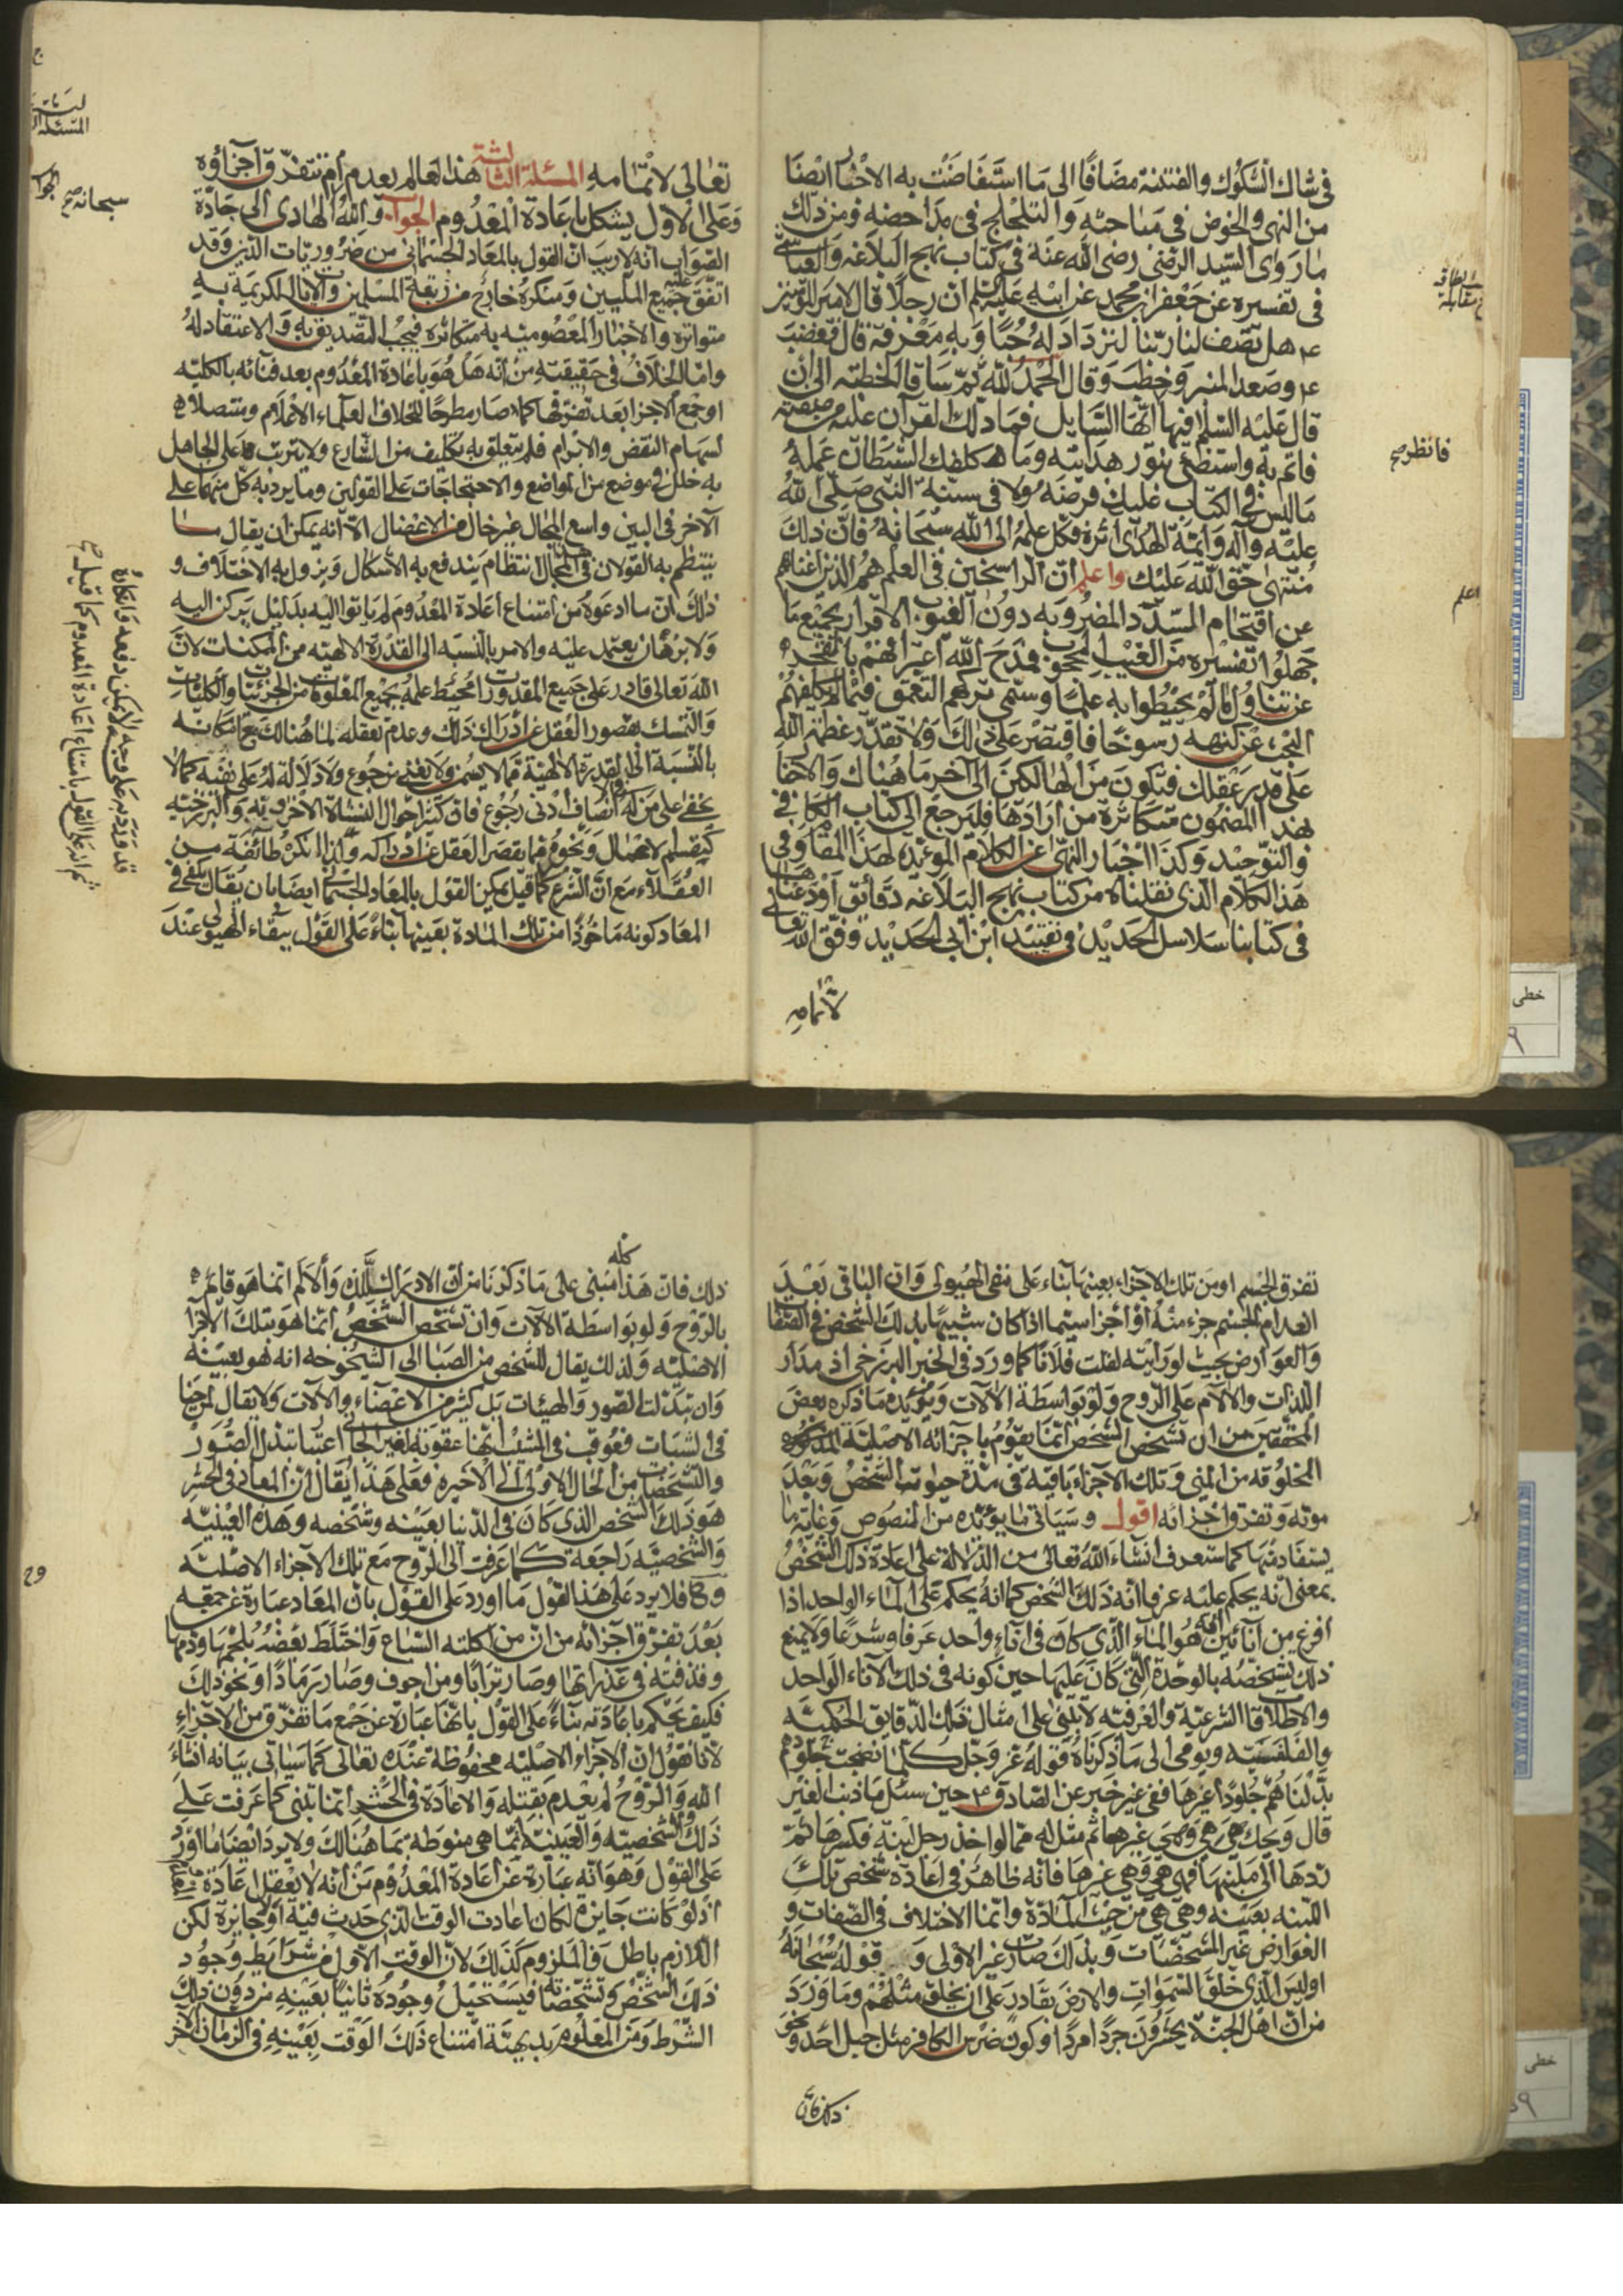 في شاك الشكوك والفتنة مضافًا الى ما استفاضت به الاخبار ايضا
من النهي والخوض في مباحثه والتلجلج في مداحضه فمن ذلك
ما رواى السيد الرضى رضى الله عنه في كتاب نهج البلاغه والعياشي
في تفسيره عن جعفر بن محمد عن ابيه عليه السلم ان رجلا قال لامير المؤمنين
ع هل تصف لنا ربنا لنزداد له حبًا وبه معرفة قال فغضب
ع وصعد المنبر وخطب وقال الحمد لله ثم ساق الخطبته الى ان
قال عليه السلم فيها ايها السايل فما دلك القرآن عليه من صفته
فاتم به واستضئ بنور هدايته وما كلفك الشيطان عمله
ما ليس في الكتاب عليك فرضه ولا في سنة النبي صلى الله
عليه وآله وائمة الهدى اثره فكل علمه الى الله سبحانه فان ذلك
منتهى حق الله عليك واعلم ان الراسخين في العلم هم الذين اغناهم
عن اقتحام السدد المضروبه دون الغيوب الاقرار بجميع ما
جهلوا تفسيره من الغيب المحجوب فمدح الله اعترافهم بالعجز
عن تناول ما لم يحيطوا به علمًا وسمى تركهم التعمق فيما لم يكلفهم
البحث عن كنهه رسوخا فاقتصر على ذلك ولا تقدر عظمة الله
على قدر عقلك فتكون من الهالكين الى آخر ما هناك والاخبار
بهذا المضمون متكاثرة من ارادها فليرجع الى كتاب الكافي
والتوحيد وكذا اخبار النهى عن الكلام الموعده لهذا المقام وفي
هذا الكلام الذي نقلناه من كتاب نهج البلاغه دقائق اودعناها
في كتابنا سلاسل الحديد في تقييد ابن ابي الحديد وفق الله تعالى
لاتمامه
فانظر صح
اعلم
تعالى لاتمامه المسئلة الثالثة هذا العالم يعدم ام تتفرق اجزاؤه
وعلى الاول يشكل باعادة المعدوم الجواب والله الهادى الى جادة
الصواب انه لا ريب ان القول بالمعاد الجسماني من ضروريات الدين وقد
اتفق عليه جميع المليين ومنكره خارج من ربقة المسلمين والايات الكريمة به
متواترة والاخبار المعصوميه به متكاثره فيجب التصديق به والاعتقاد له
واما الخلاف في حقيقته من انه هل هو باعادة المعدوم بعد فنائه بالكليه
او جمع الاجزا بعد تفرقها كما صار مطرحًا لخلاف العلماء الاعلام ومتصلا
لسهام النقض والابرام فلم يتعلق به تكليف من الشارع ولا يترتب على الجاهل
به خلل في موضع من المواضع والاحتجاجات على القولين وما يرد به كل منهما على
الآخر في البين واسع المجال غير خال من الاعضال الا انه يمكن ان يقال
ينتظم به القولان في المجال انتظام يندفع به الاشكال ويزول به الاختلاف و
ذلك ان ما ادعوه من امتناع اعادة المعدوم لم ياتوا اليه بدليل يركن اليه
ولا برهان يعتمد عليه والامر بالنسبه الى القدرة الالهيه من الممكنات لان
الله تعالى قادر على جميع المقدورات محيط علمه بجميع المعلومات من الجزئيات والكليات
والتمسك بقصور العقل عن ادراك ذلك وعدم تعقله لما هنالك مع امكانه
بالنسبة الى القدرة الالهية فما لا يسمن ولا يغني من جوع ولا دلالة له على نفيه كما لا
يخفى على من له انصاف وادنى رجوع فان كثر احوال النشاة الاخروية والبرزخيه
العقلاء مع ان الشرع كما قيل يمكن القول بالمعاد الجسماني ايضا بان يقال يكفي في
المعاد كونه ماخوذا من تلك المادة بعينها بناء على القول ببقاء الهيولى عند
سبحانه صح
الجواب
المسئلة
قد ورد به على وجه لا يمكن دفعه وانكاره
ثم انه على القول بامتناع اعادة المعدوم كما قيل صح
تفرق الجسم او من تلك الاجزاء بعينها بناء على نفي الهيولى وان الباقي بعد
انعدام الجسم جزء منه او اجزا سيما اذا كان شبيها بذلك الشخص في الصفات
والعوارض بحيث لو رايته لقلت فلانا كما ورد في الخبر البرزخي اذ مدار
اللذات والالام على الروح ولو بواسطة الالات ويؤيده ما ذكره بعض
المحققين من ان تشخص الشخص انما يقوم باجزائه الاصلية
المخلوقه من المني وتلك الاجزاء باقية في مدة حيوة الشخص وبعد
موته وتفرق اجزائه اقول وسياتي ما يؤيده من النصوص وغاية ما
يستفاد منها كما ستعرف انشاء الله تعالى من الدلالة على اعادة ذلك الشخص
بمعنى انه يحكم عليه عرفا انه ذلك الشخص كما انه يحكم على الماء الواحد اذا
افرغ من انائين انه هو الماء الذي كان في اناء واحد عرفا وشرعا ولا يمنع
ذلك تشخصه بالوحدة التي كان عليها حين كونه في ذلك الاناء الواحد
والاطلاقات الشرعية والعرفيه لا يبتنى على امثال تلك الدقايق الحكميه
والفلسفيه ويومى الى ما ذكرناه قوله عز وجل كلما نضجت جلودهم
بدلناهم جلودا غيرها ففي غير خبر عن الصادق ع حين سئل ما ذنب الغير
قال ويحك هي هي وهي غيرها ثم مثل له مما لو اخذ رجل لبنة فكسرها ثم
ردها الى ملبنها فهي هي وهي غيرها فانه ظاهر في اعادة شخص تلك
اللبنه بعينه وهي هي من حيث المادة وانما الاختلاف في الصفات و
العوارض غير المشخصات وبذلك صارت غير الاولى و قوله سبحانه
اوليس الذي خلق السموات والارض بقادر على ان يخلق مثلهم وما ورد
من ان اهل الجنة يحشرون جردا مردا وكون ضرس الكافر مثل جبل احد ونحو
ذلك فان
ذلك فان هذا كله مبنى على ما ذكرنا من ان الادراك للذه والالم انما هو قايم
بالروح ولو بواسطة الالات وان تشخص الشخص انما هو بتلك الاجزا
الاصليه ولذلك يقال للشخص من الصبا الى الشيخوخه انه هو بعينه
وان تبدلت الصور والهيئات بل كثير من الاعضاء والالات ولا يقال لمن جنا
في الشباب فعوقب في المشيب انها عقوبة لغير الجاني اعتبارا بتبدل الصور
والتشخصات من الحال الاولى الى الاخيره فعلى هذا يقال ان المعاد في الحشر
هو ذلك الشخص الذي كان في الدنيا بعينه وشخصه وهذه العينيه
والشخصيه راجعة كما عرفت الى الروح مع تلك الاجزاء الاصليه
وح فلا يرد على هذا القول ما اورد على القول بان المعاد عبارة عن جمعه
بعد تفرق اجزائه من ان من اكلته السباع واختلط بعضه بلحمها ودمها
وقذفته في عذراتها وصار ترابا ومن احرق وصار رمادا ونحو ذلك
فكيف يحكم باعادته بناء على القول بانها عبارة عن جمع ما تفرق من الاجزاء
لانا نقول ان الاجزاء الاصليه محفوظة عنده تعالى كما سياتي بيانه انشاء
الله والروح لم يعدم بقتله والاعادة في الحشر انما تبتني كما عرفت على
ذلك والشخصيه والعينية انما هي منوطة بما هنالك ولا يرد ايضا ما اورد
على القول وهو انه عبارة عن اعادة المعدوم من انه لا يعقل اعادة
اذ لو كانت جايزه لكان اعادت الوقت الذي حدث فيه اولا جايزة لكن
اللازم باطل فالملزوم كذلك لان الوقت الاول من شرايط وجود
ذلك الشخص وتشخصاته فيستحيل وجوده ثانيا بعينه من دون ذلك
الشرط ومن المعلوم بديهية امتناع ذلك الوقت بعينه في الزمان الاخر
وح
خطى
خطى